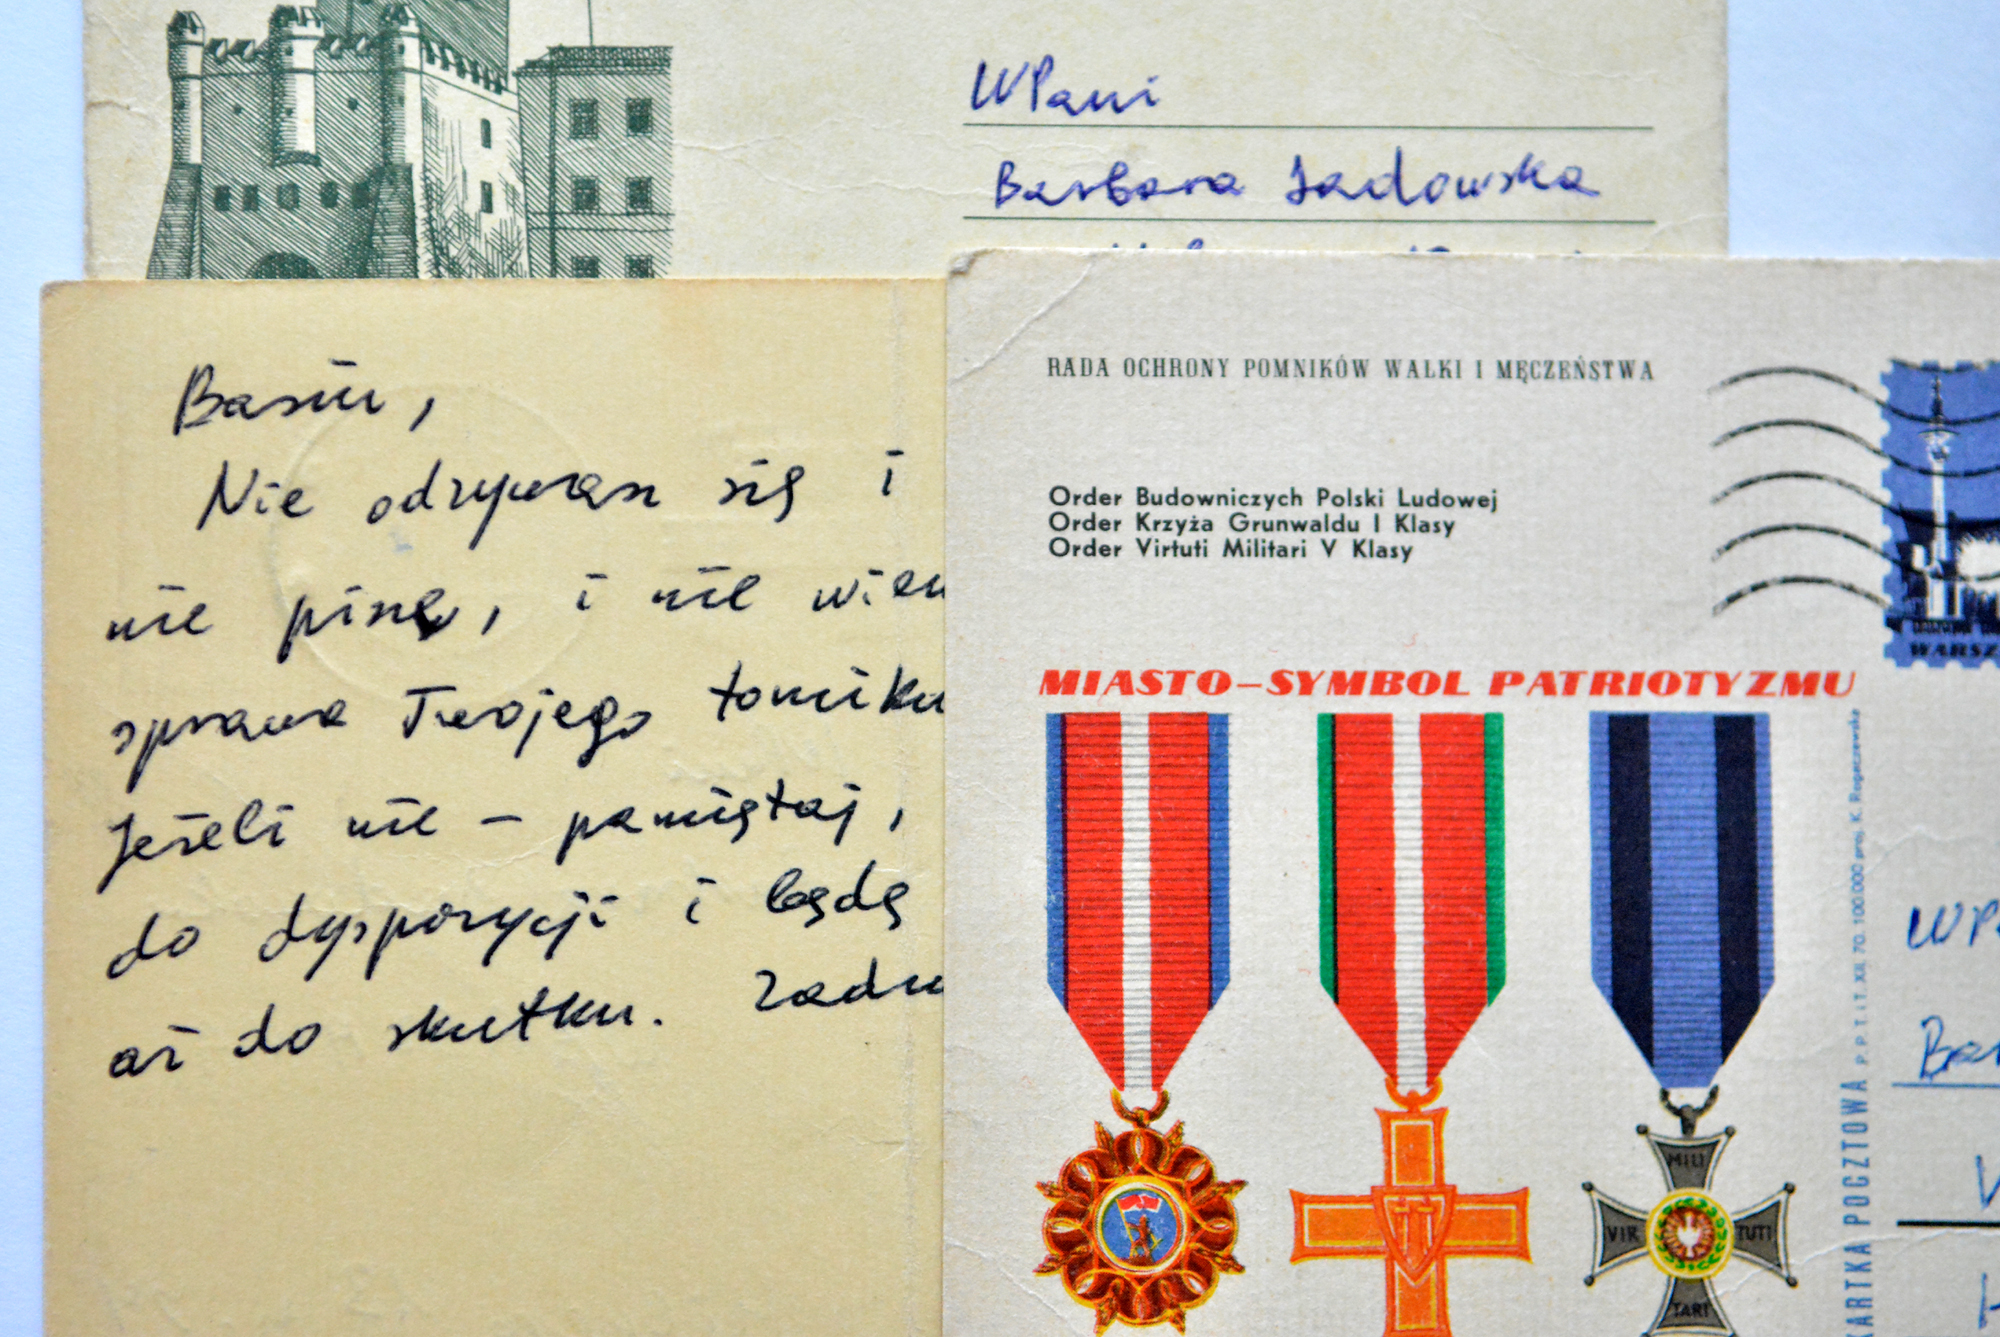 WPani
Barbara Sadowska
Basiu,
Nie odzywasz się i
nie piszę, i nie wiem
sprawa Twojego tomiku
Jeżeli nie – pamiętaj,
do dyspozycji i będę
aż do skutku.
RADA OCHRONY POMNIKÓW WALKI I MĘCZEŃSTWA
Order Budowniczych Polski Ludowej
Order Krzyża Grunwaldu I Klasy
Order Virtuti Militari V Klasy
MIASTO–SYMBOL PATRIOTYZMU
MILI
VIR TUTI
TARI
P.P.T.iT. XII. 70. 100.000 proj. K. Rogaczewska
KARTKA POCZTOWA